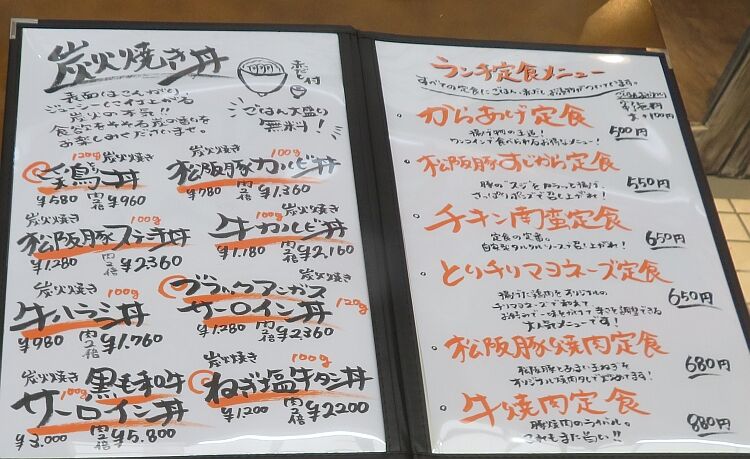 炭火焼き丼
赤だし付
表面はこんがり、
ジューシーに仕上がる
炭火の本気!
食欲をそそる炭の違いを
お楽しみくださいませ。
ごはん大盛り
無料!
120g 炭火焼き
美鳥丼
¥580 肉2倍 ¥960
炭火焼き 100g
松阪豚カルビ丼
¥780 肉2倍 ¥1,360
炭火焼き 100g
松阪豚ステーキ丼
¥1.280 肉2倍 ¥2360
炭火焼き 100g
牛カルビ丼
¥1.180 肉2倍 ¥2,160
炭火焼き 100g
牛ハラミ丼
¥980 肉2倍 ¥1.760
炭火焼き
ブラックアンガス
サーロイン丼 120g
¥1.280 肉2倍 ¥2360
炭火焼き 黒毛和牛
100g
サーロイン丼
¥3.000 肉2倍 ¥5.800
炭火焼き 100g
ねぎ塩牛タン丼
¥1200 肉2倍 ¥2200
ランチ定食メニュー
すべての定食にごはん、赤だし、お漬物がついてます。
からあげ定食
500円
揚げ物の王道!
ワンコインで食べられるお得メニュー!
松阪豚すじから定食
550円
豚の"スジ"をカラっと揚げ、
さっぱりポン酢で召し上がれ!
チキン南蛮定食
650円
定食の定番。
自家製タルタルソースで召し上がれ!
とりチリマヨネーズ定食
650円
揚げた鶏肉をオリジナルの
チリマヨネーズで和えて
大人気メニューです!
松阪豚焼肉定食
680円
松阪豚とあまい玉ねぎを
オリジナル焼肉タレで炒めてます!
牛焼肉定食
880円
豚焼肉のライバル。
これもまた旨い!!